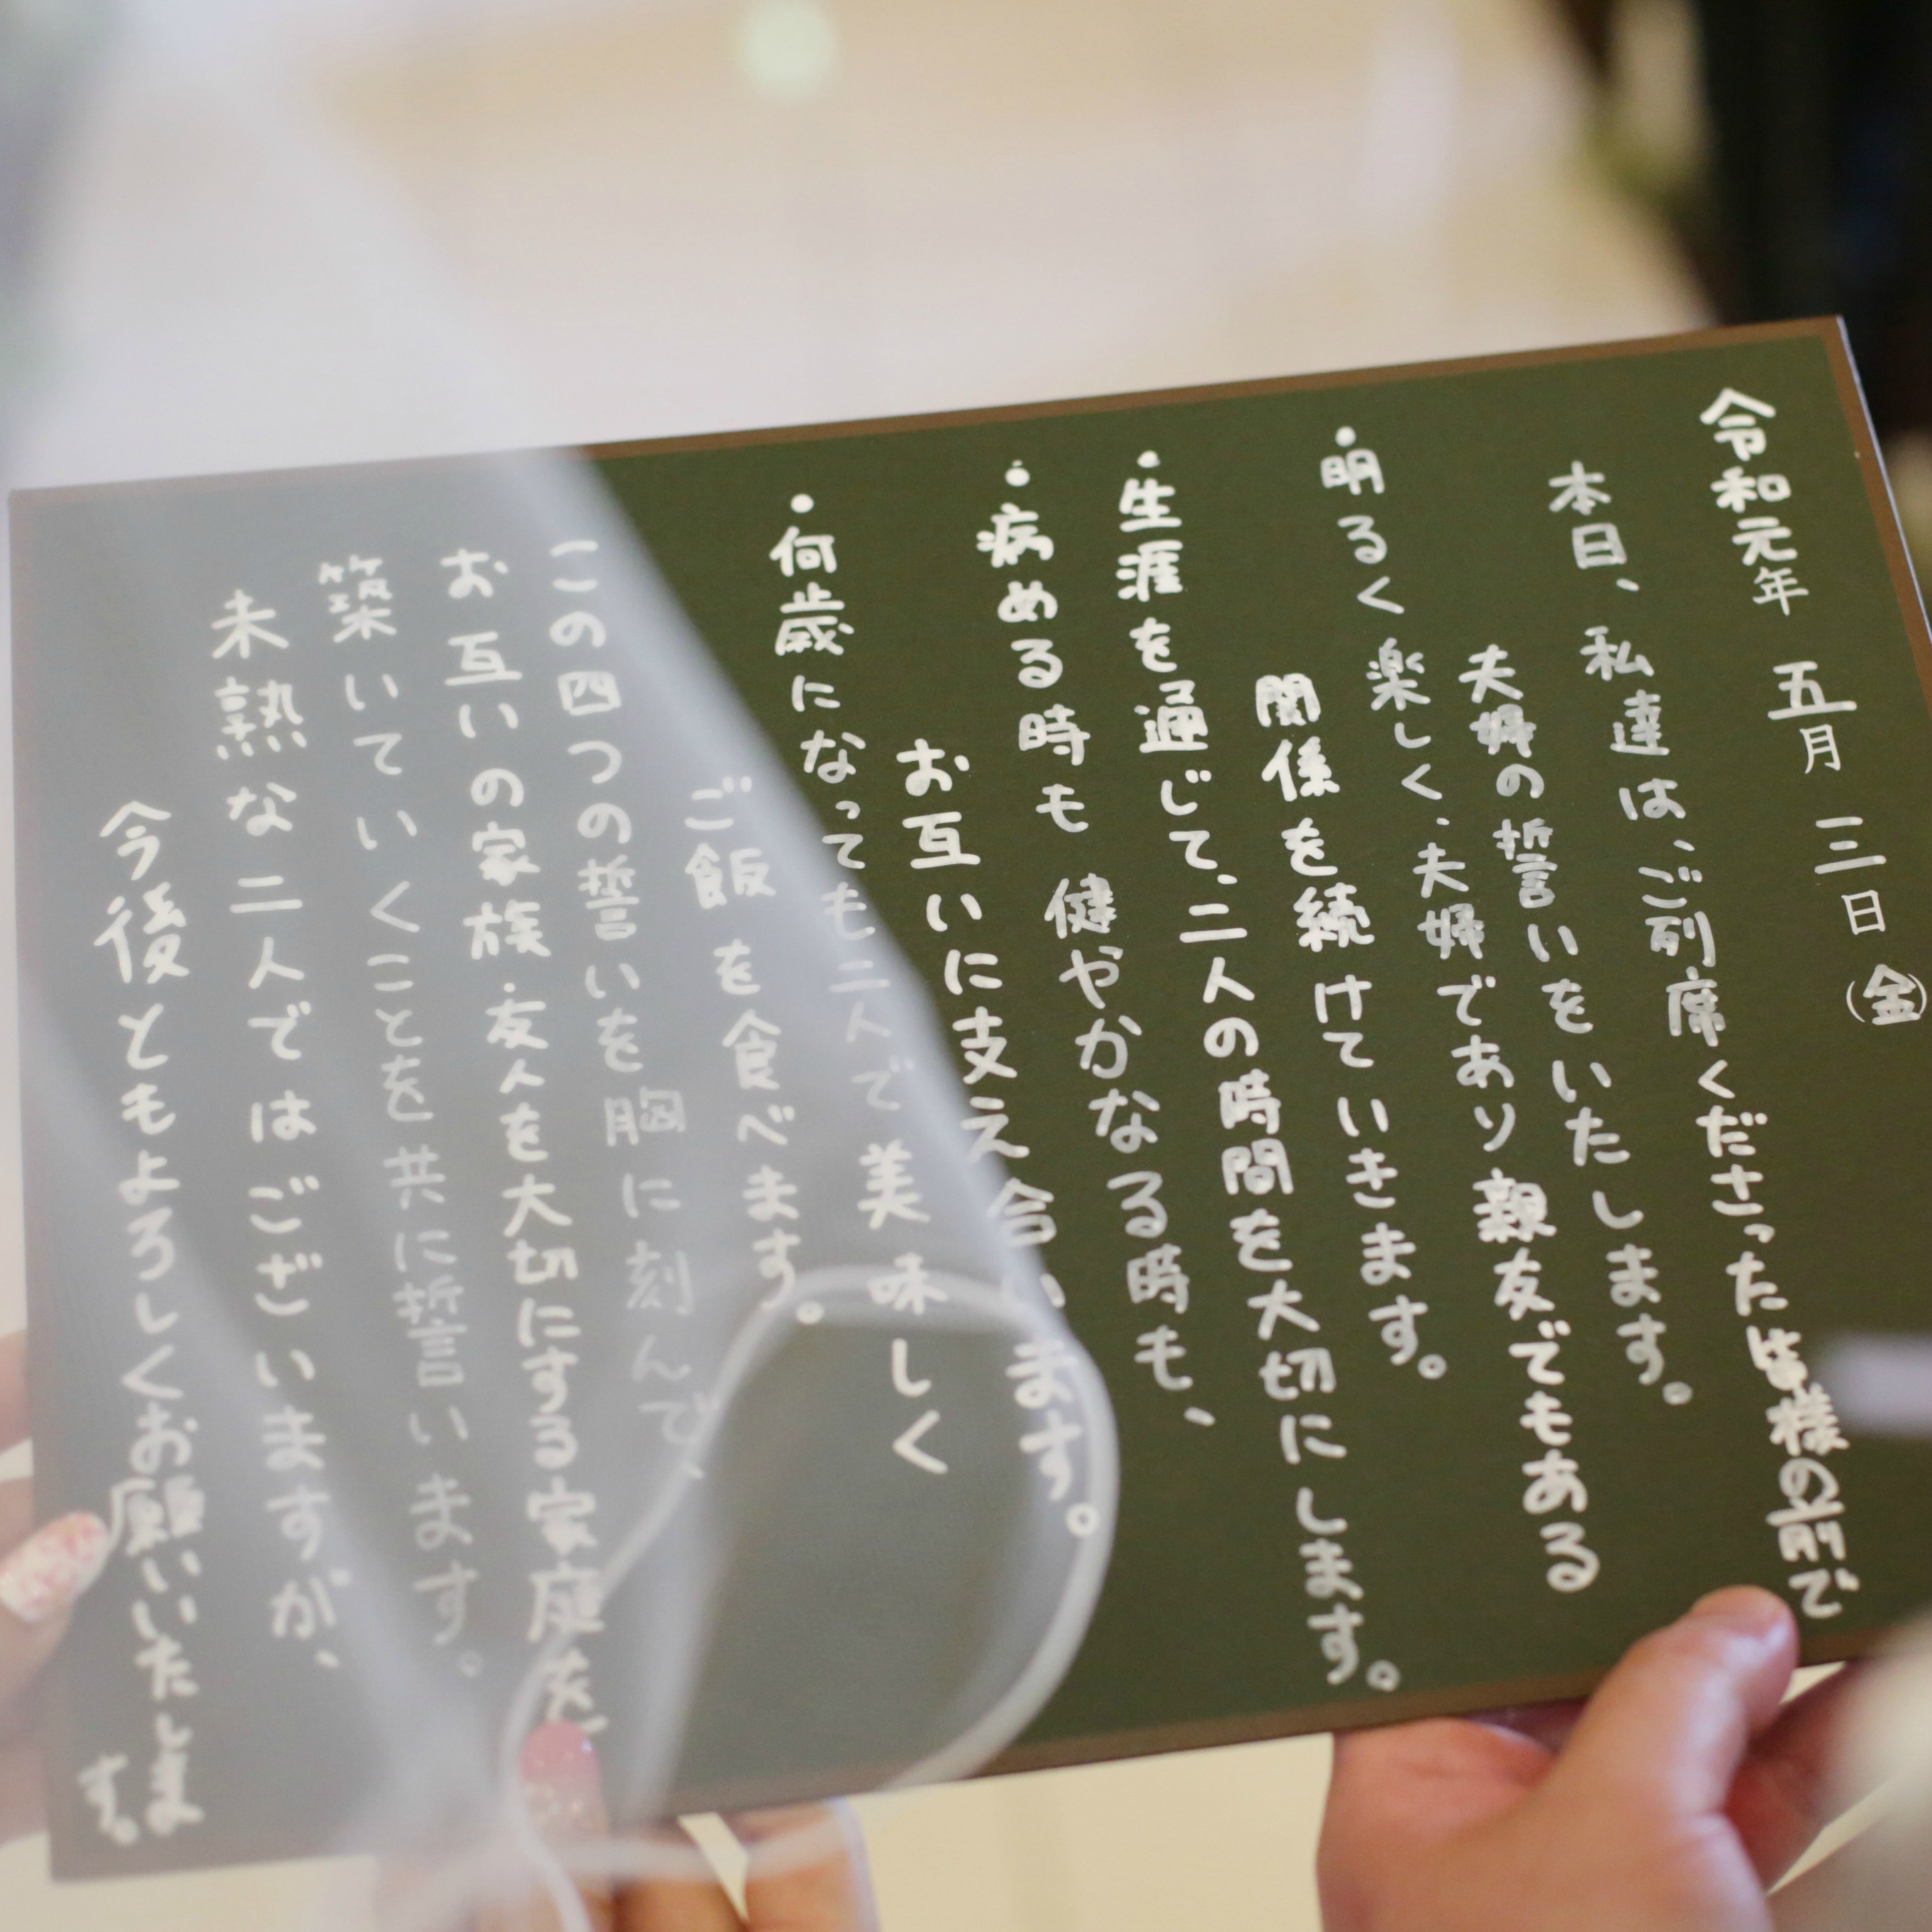 令和元年 五月 三日 (金)
本日、私達は、ご列席くださった皆様の前で
夫婦の誓いをいたします。
・明るく楽しく、夫婦であり親友でもある
関係を続けていきます。
・生涯を通じて、二人の時間を大切にします。
・病める時も健やかなる時も、
お互いに支え合います。
・何歳になっても二人で美味しく
ご飯を食べます。
この四つの誓いを胸に刻んで、
お互いの家族・友人を大切にする家庭を
築いていくことを共に誓います。
未熟な二人ではございますが、
今後ともよろしくお願いいたします。